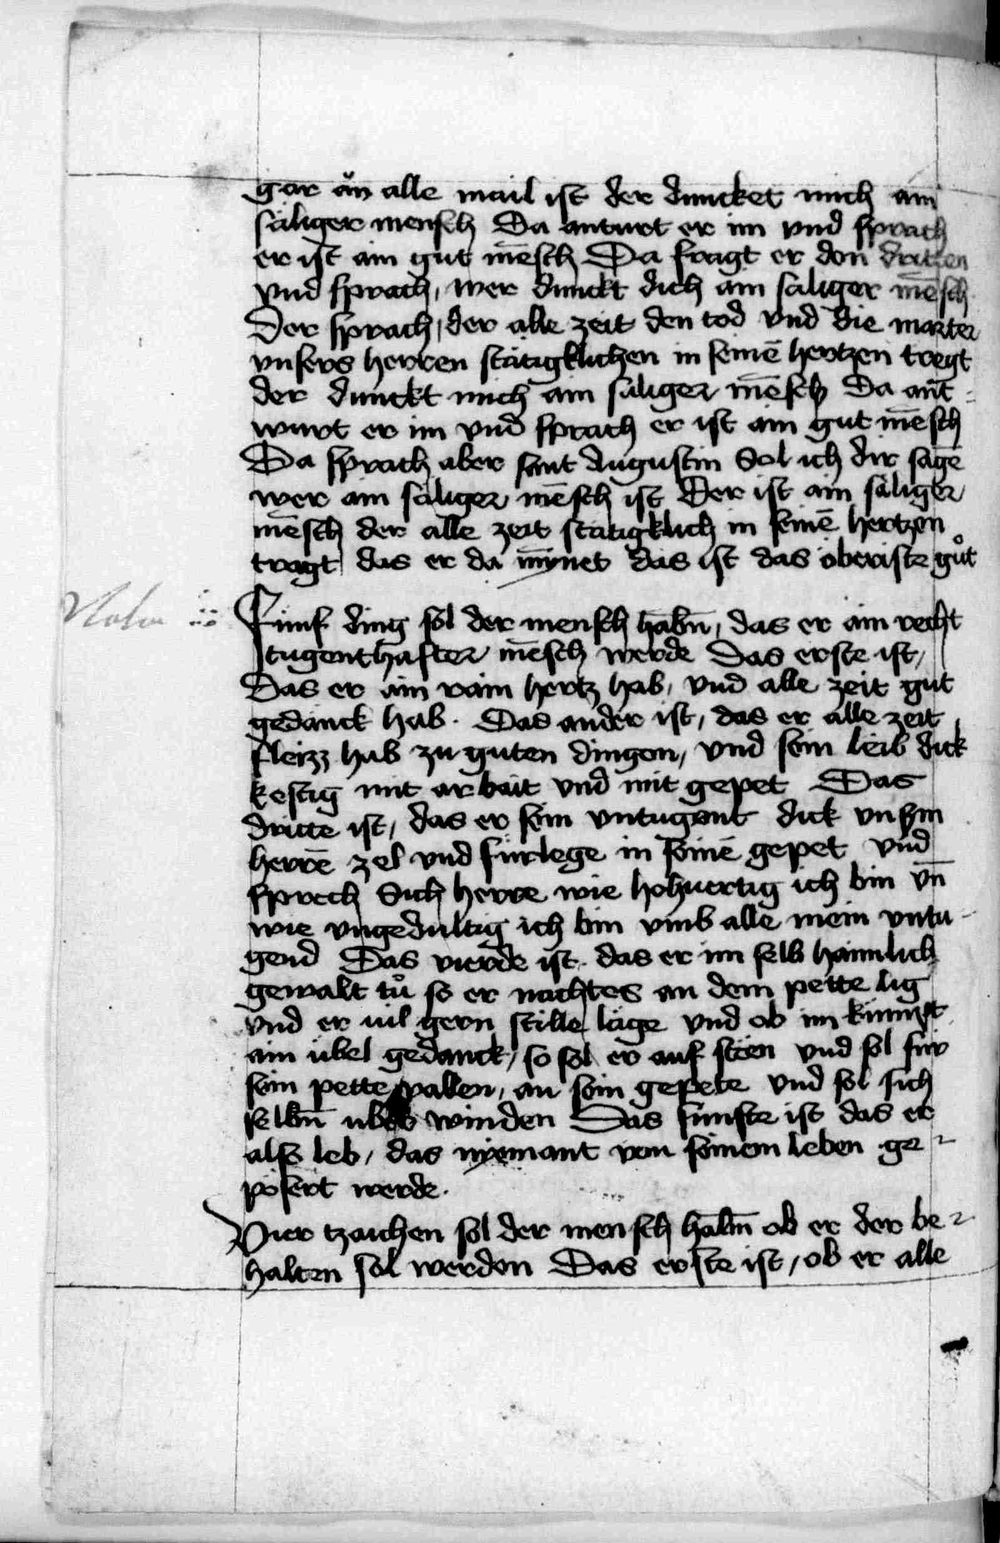 gar ǎn alle mail ist der duncket mich ain
säliger mensch Da anturt er im vnd sprach
er ist ain gut mēsch Da fragt er den dritten
vnd sprach, wer dunckt dich ain säliger mēsch
Der sprach, der alle zeit den tod vnd die marter
vnsers herren stätigklichen in seinē hertzen tregt
der dunckt mich ain säliger mēsch Da ant-
wurt er im vnd sprach er ist ain gut mēsch
Da sprach aber sant Augustin Sol ich dir sage
wer ain säliger mēsch ist Der ist ain säliger
mēsch der alle zeit stätigklich in seinē hertzen
tregt das er da mynet das ist das oberiste gůt
Nota
Fünf ding sol der mensch habn̄, das er ain recht
tugenthafter mēsch werde Das erste ist,
Das er ain rain hertz hab, vnd alle zeit gut
gedänck hab. Das ander ist, das er alle zeit
fleizz hab zu guten dingen, vnd sein leib dick
kestig mit arbait vnd mit gepet Das
dritte ist, das er sein vntugent dick vnsm
herrē zel vnd fürlege in seinē gepet vnd
sprech Sich herre wie hohuertig ich bin vn̄
wie vngedultig ich bin vmb alle mein vntu-
gend Das vierde ist. das er im selb haimlich
gewalt tů so er nachtes an dem pette lig
vnd er uil gern stille läge vnd ob im kumpt
ain übel gedanck, so sol er auf sten vnd sol für
sein pette vallen, an sein gepete vnd sol sich
selbn̄ vber winden Das fünfte ist das er
also leb, das nyemant von seinem leben ge-
posert werde.
Vier tzaichen sol der mensch habn̄ ob er der be-
halten sol werden Das erste ist, ob er alle